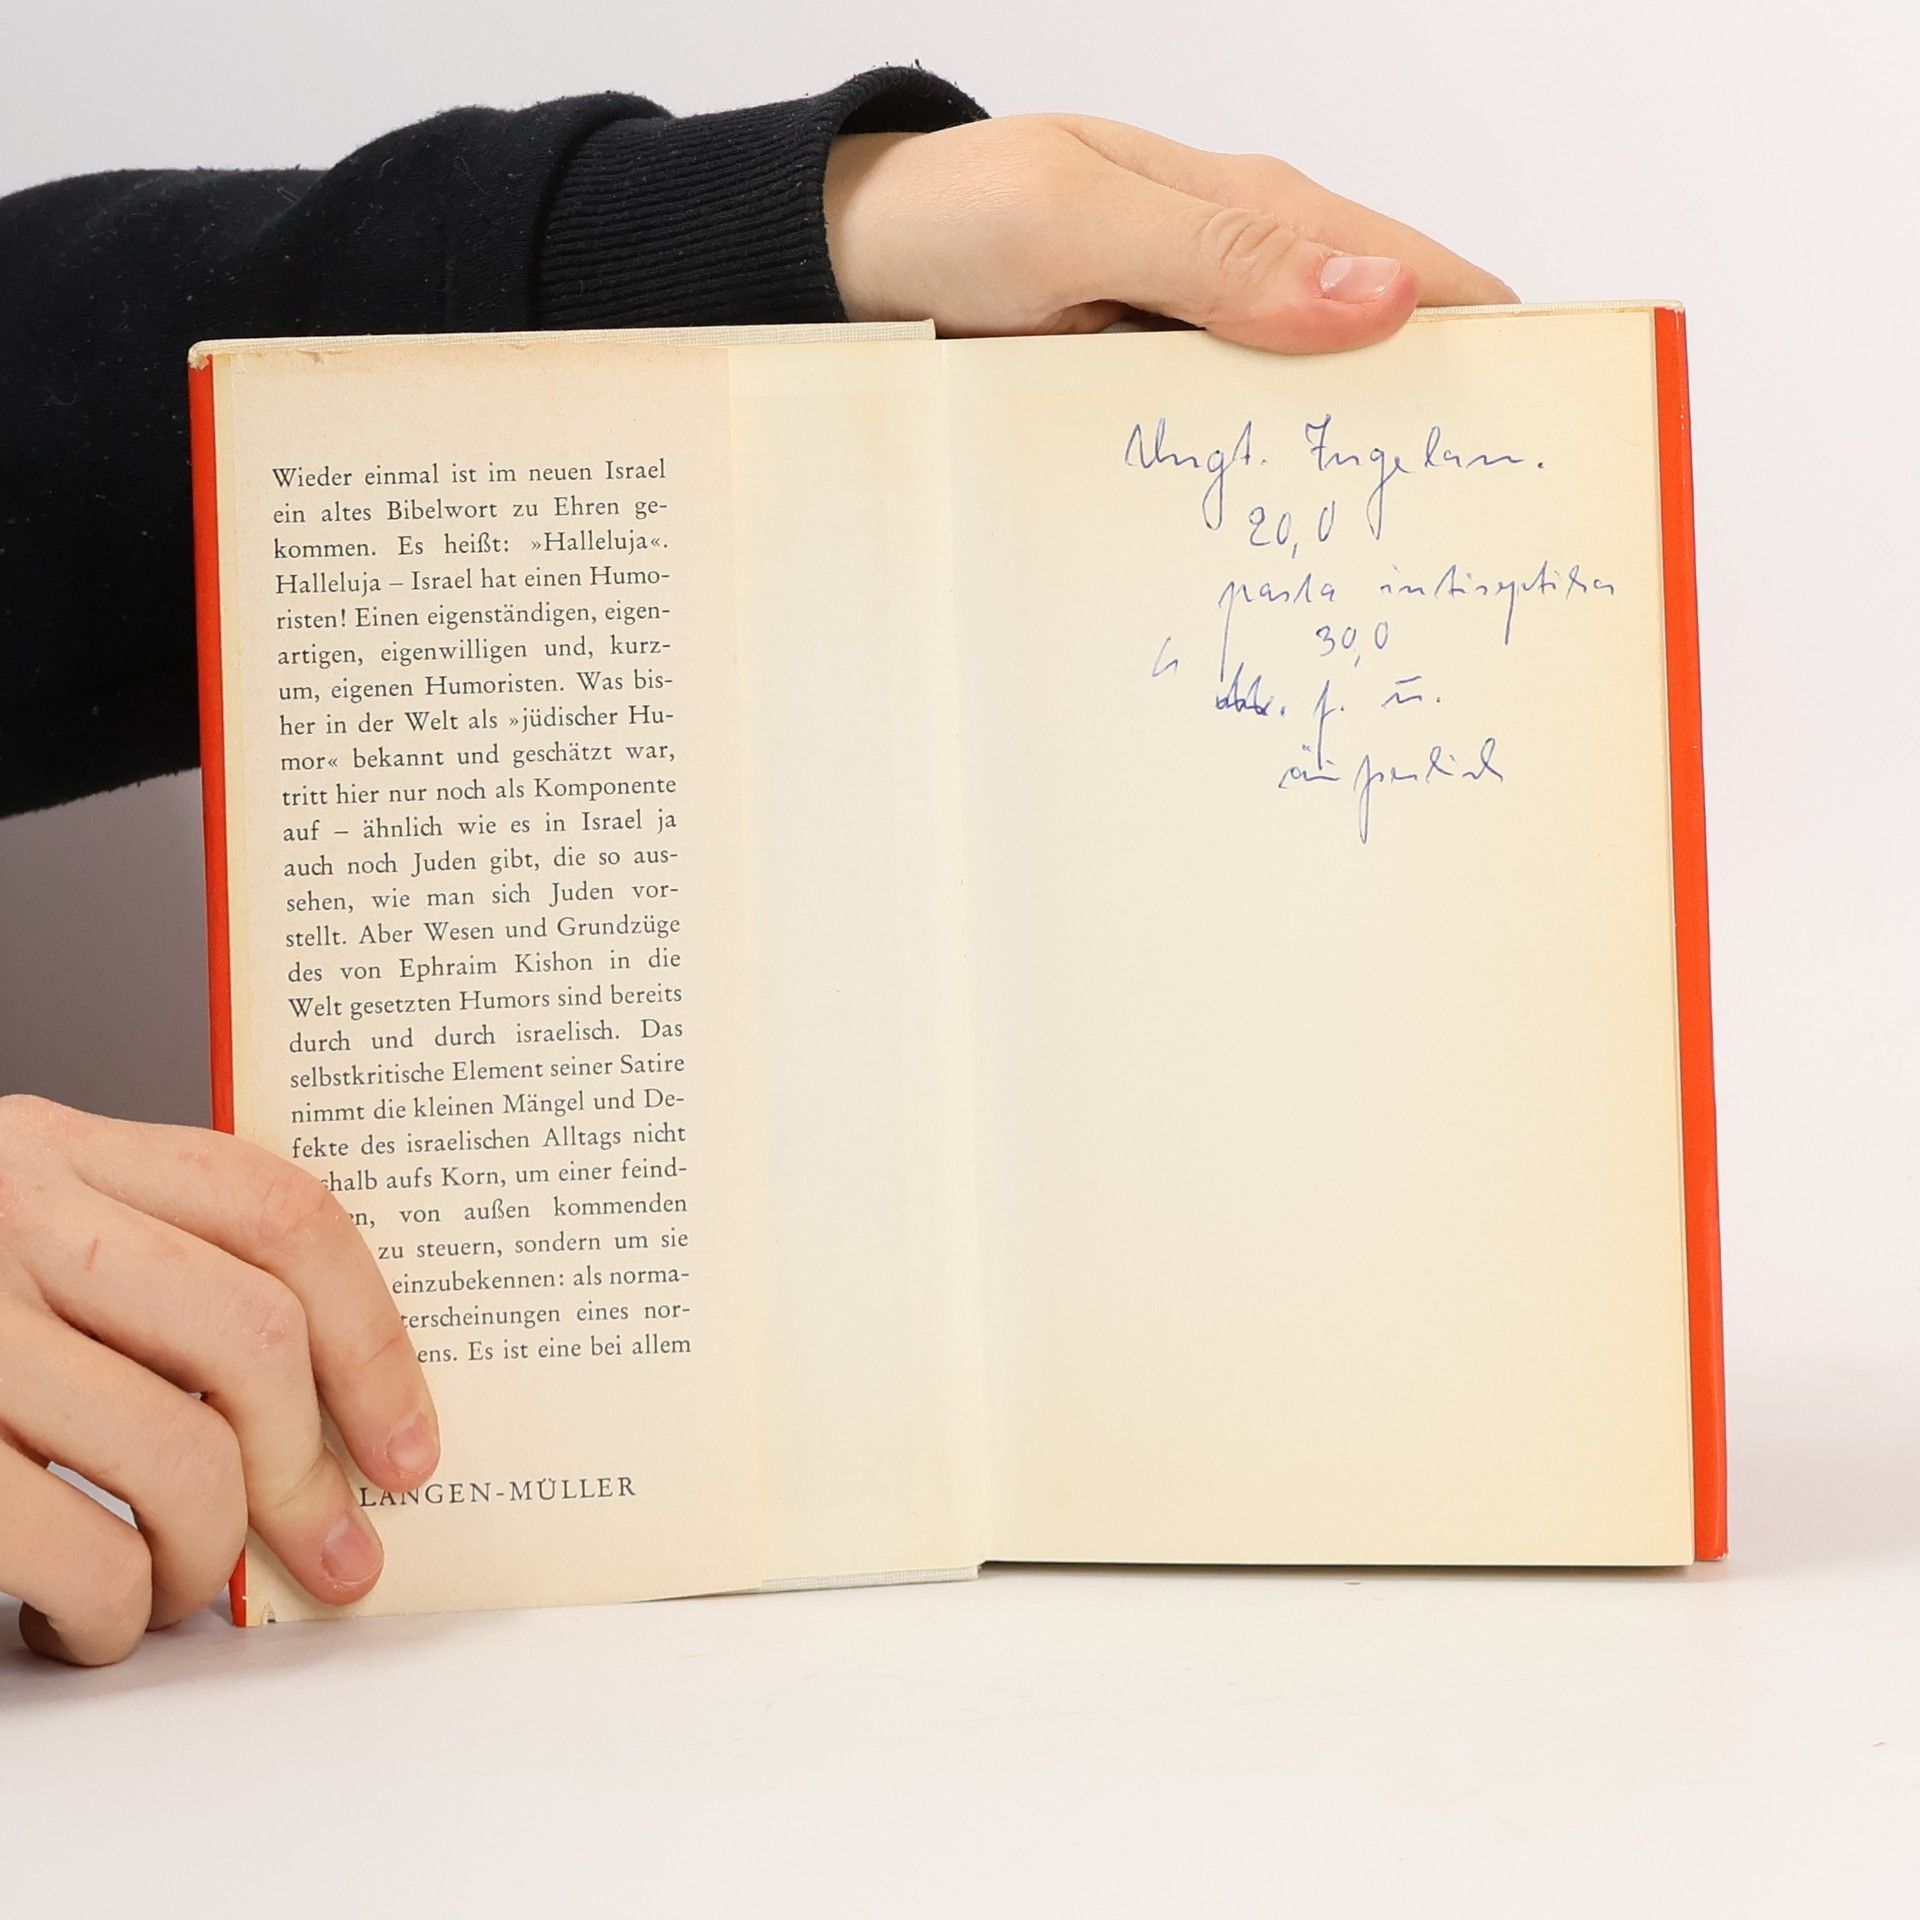 Wieder einmal ist im neuen Israel
ein altes Bibelwort zu Ehren ge-
kommen. Es heißt: »Halleluja«.
Halleluja – Israel hat einen Humo-
risten! Einen eigenständigen, eigen-
artigen, eigenwilligen und, kurz-
um, eigenen Humoristen. Was bis-
her in der Welt als »jüdischer Hu-
mor« bekannt und geschätzt war,
tritt hier nur noch als Komponente
auf – ähnlich wie es in Israel ja
auch noch Juden gibt, die so aus-
sehen, wie man sich Juden vor-
stellt. Aber Wesen und Grundzüge
des von Ephraim Kishon in die
Welt gesetzten Humors sind bereits
durch und durch israelisch. Das
selbstkritische Element seiner Satire
nimmt die kleinen Mängel und De-
fekte des israelischen Alltags nicht
shalb aufs Korn, um einer feind-
en, von außen kommenden
zu steuern, sondern um sie
einzubekennen: als norma-
terscheinungen eines nor-
ens. Es ist eine bei allem
LANGEN-MÜLLER
Ungt. Ingelan.
20,0
pasta
30,0
f. u.